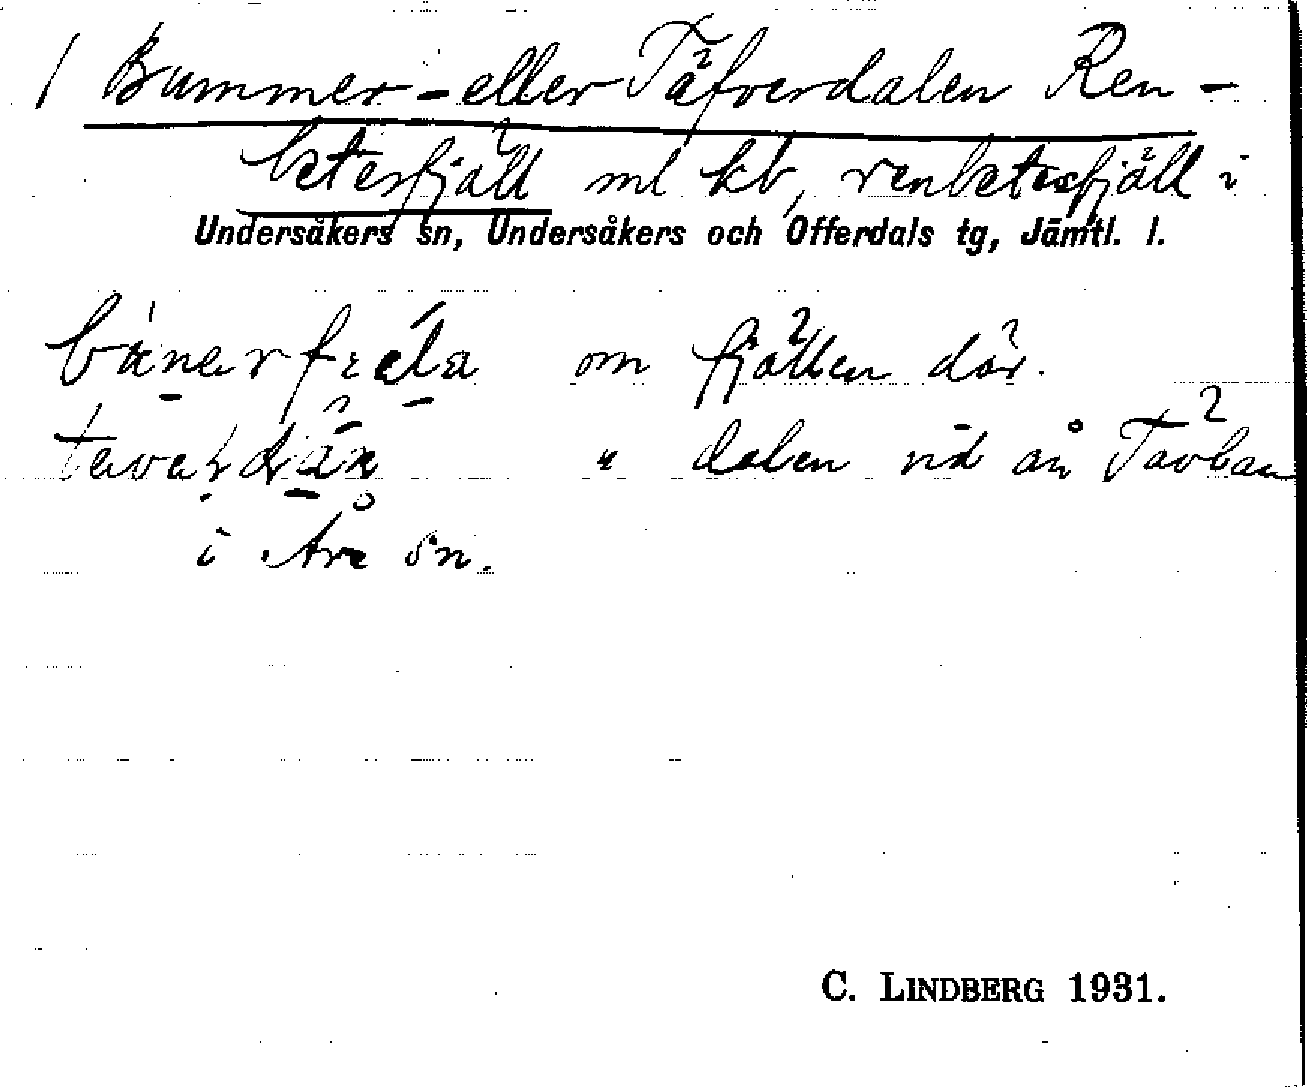 / Bummer- eller Täfverdalen Ren-
betesfjäll ml kb, renbetesfjäll i
Undersåkers sn, Undersåkers och Offerdals tg, Jämtl. l.
om fjällen där.
" dalen vid ån Tävlan
i Åre sn.
C. LINDBERG 1931.